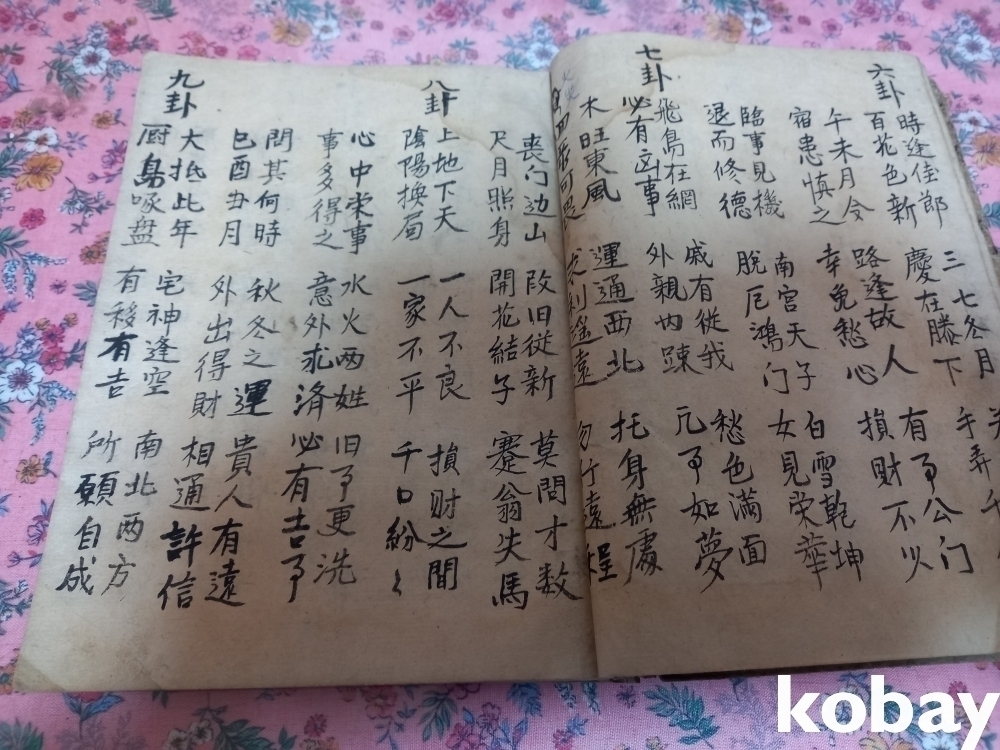 六卦
時逢佳郎
百花色新
三七冬月
慶在膝下
手弄千
午未月令
宿患慎之
路逢故人
幸免愁心
有亊公门
損財不少
臨事見機
退而修德
南宮天子
脫厄鴻门
白雪乾坤
女見荣華
七卦
飛鳥在網
必有凶事
戚有従我
外親内踈
愁色满面
凡亊如夢
木旺東風
運通西北
求利途遠
托身無處
勿行遠程
丧门边山
尺月照身
改旧従新
開花結子
莫問才数
蹇翁失馬
八卦
上地下天
陰陽換局
一人不良
一家不平
損财之間
千口紛々
心中栄事
事多得之
水火两姓
意外求済
旧亊更洗
必有吉亊
問其何時
巳酉丑月
秋冬之運
外出得財
貴人有遠
相通許信
九卦
大抵此年
厨鳥啄盘
宅神逢空
有移有吉
南北两方
所願自成
kobay